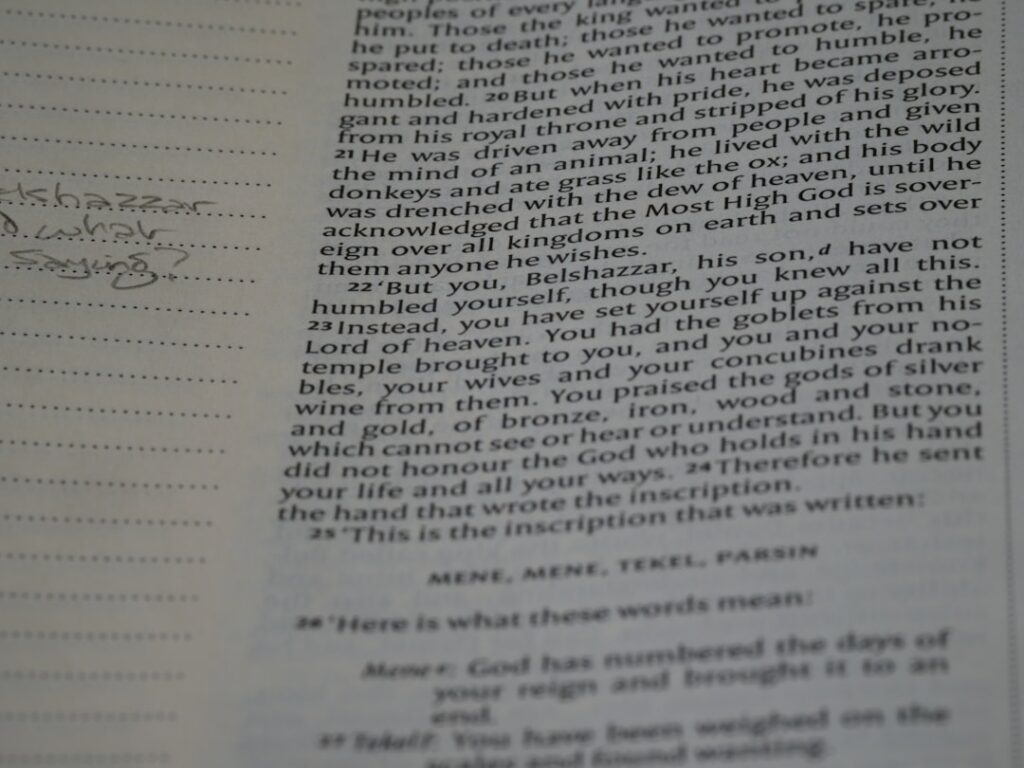 elshazzar
what
saying?
peoples of every
him. Those the king wanted to
he put to death; those he wanted to spare, he
spared; those he wanted to promote, he pro-
moted; and those he wanted to humble, he
humbled. 20 But when his heart became arro-
gant and hardened with pride, he was deposed
from his royal throne and stripped of his glory.
21 He was driven away from people and given
the mind of an animal; he lived with the wild
donkeys and ate grass like the ox; and his body
was drenched with the dew of heaven, until he
acknowledged that the Most High God is sover-
eign over all kingdoms on earth and sets over
them anyone he wishes.
22 ‘But you, Belshazzar, his son,d have not
humbled yourself, though you knew all this.
23 Instead, you have set yourself up against the
Lord of heaven. You had the goblets from his
temple brought to you, and you and your no-
bles, your wives and your concubines drank
wine from them. You praised the gods of silver
and gold, of bronze, iron, wood and stone,
which cannot see or hear or understand. But you
did not honour the God who holds in his hand
your life and all your ways. 24 Therefore he sent
the hand that wrote the inscription.
25 ‘This is the inscription that was written:
MENE, MENE, TEKEL, PARSIN
26 ‘Here is what these words mean:
Mene: God has numbered the days of
your reign and brought it to an
end.
27 Tekel: You have been weighed on the
scales and found wanting.